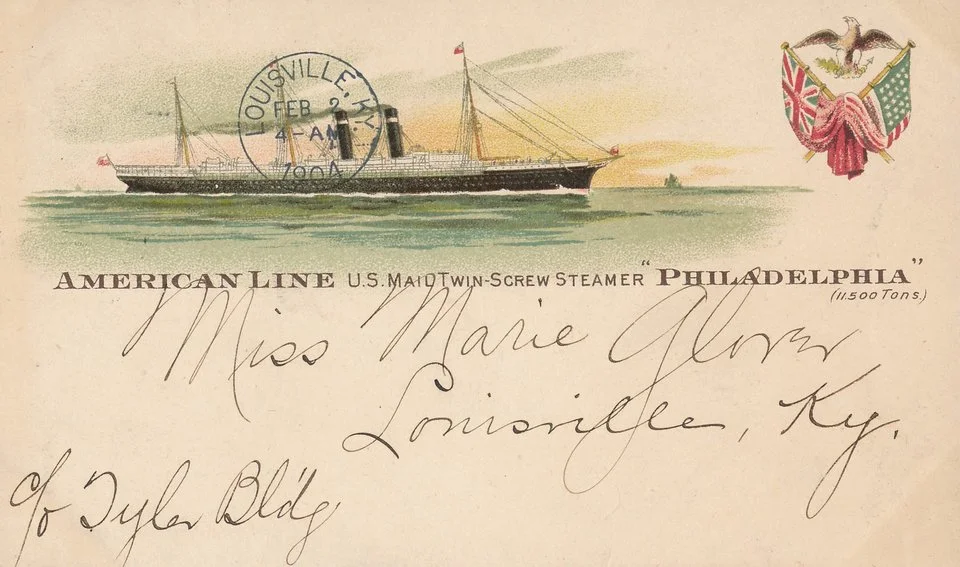 LOUISVILLE, KY.
FEB 2
4-AM
1904
AMERICAN LINE U.S. MAIL TWIN-SCREW STEAMER "PHILADELPHIA"
(11.500 Tons.)
Miss Marie Glover
Louisville, Ky.
c/o Tyler Bldg